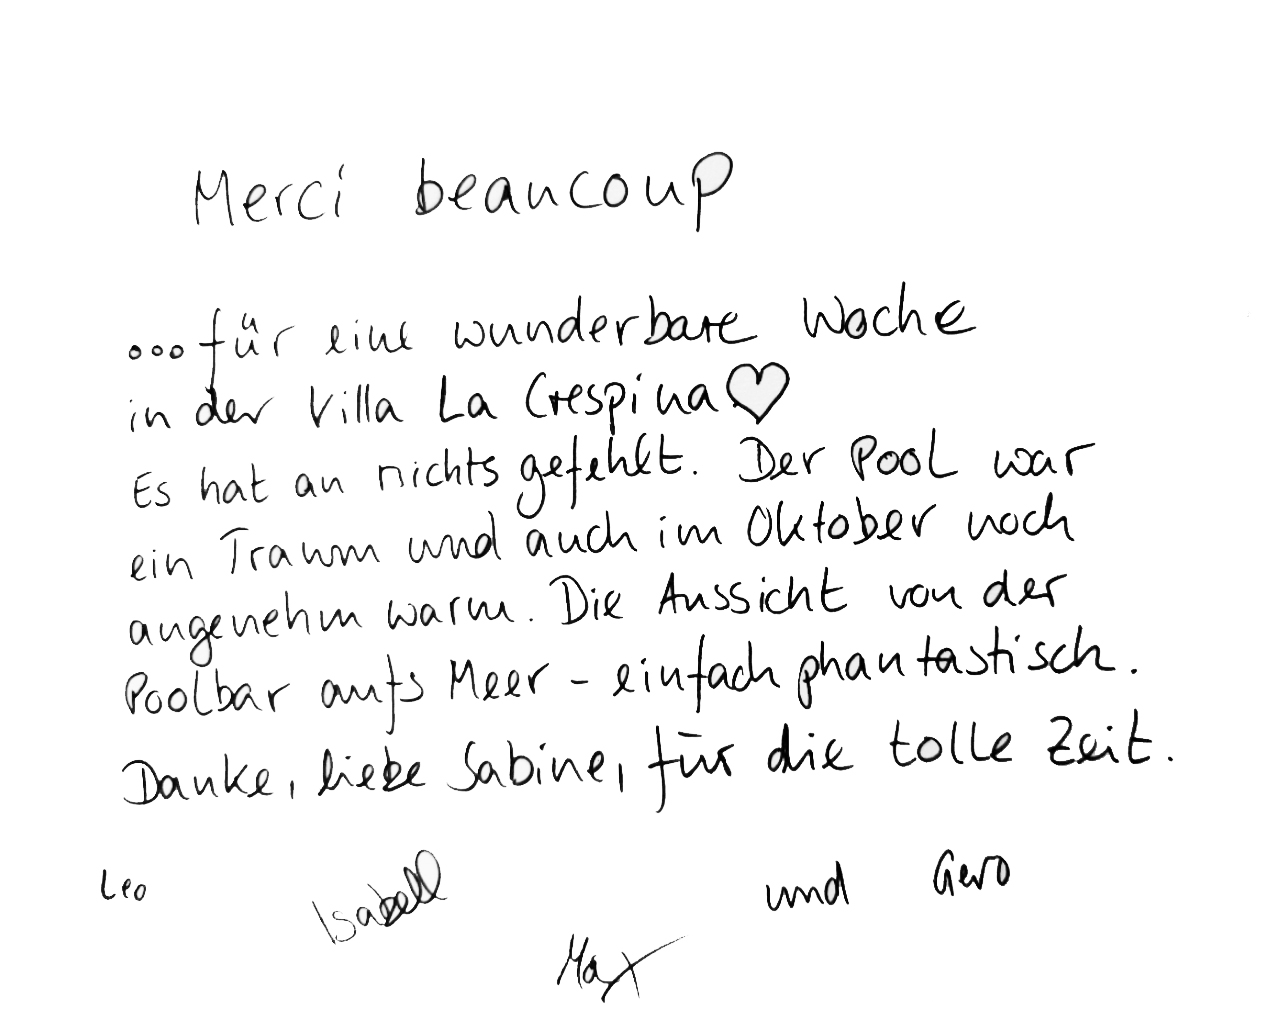 Merci beaucoup
...für eine wunderbare Woche
in der Villa La Crespina♡
Es hat an nichts gefehlt. Der Pool war
ein Traum und auch im Oktober noch
angenehm warm. Die Aussicht von der
Poolbar aufs Meer - einfach phantastisch.
Danke, liebe Sabine, für die tolle Zeit.
Leo Isabell und Gero
Max